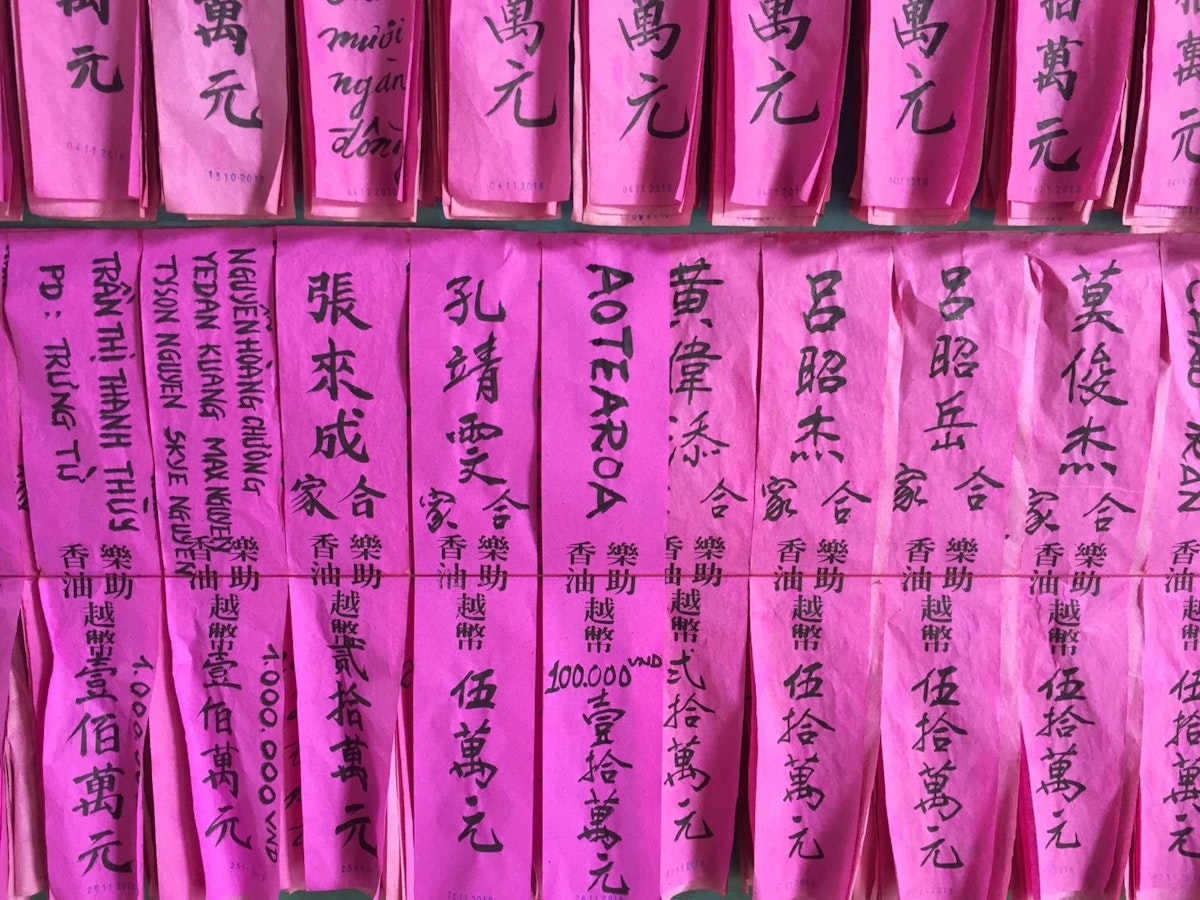 萬元
04112018
萬元
13102018
mười
ngàn
đồng
04112018
萬元
04112018
萬元
04112018
萬元
04112018
萬元
04112018
拾萬元
04112018
萬元
TRẦN THỊ THANH THỦY
PD: TRƯNG TỪ
樂助
香油
越幣
壹佰萬元
1.000.000
25112018
NGUYỄN HOÀNG CHƯƠNG
YEDAN KUANG MAX NGUYEN
TYSON NGUYEN SKYE NGUYEN
樂助
香油
越幣
壹佰萬元
1.000.000 VND
張來成
合家
樂助
香油
越幣
貳拾萬元
孔靖雯
合家
樂助
香油
越幣
伍萬元
AOTEAROA
樂助
香油
越幣
100.000 VND
壹拾萬元
26112018
黄偉添
合
樂助
香油
越幣
弍拾萬元
呂昭杰
合家
樂助
香油
越幣
伍拾萬元
呂昭岳
合家
樂助
香油
越幣
伍拾萬元
莫俊杰
合家
樂助
香油
越幣
伍拾萬元
樂助
香油
越幣
伍拾萬元